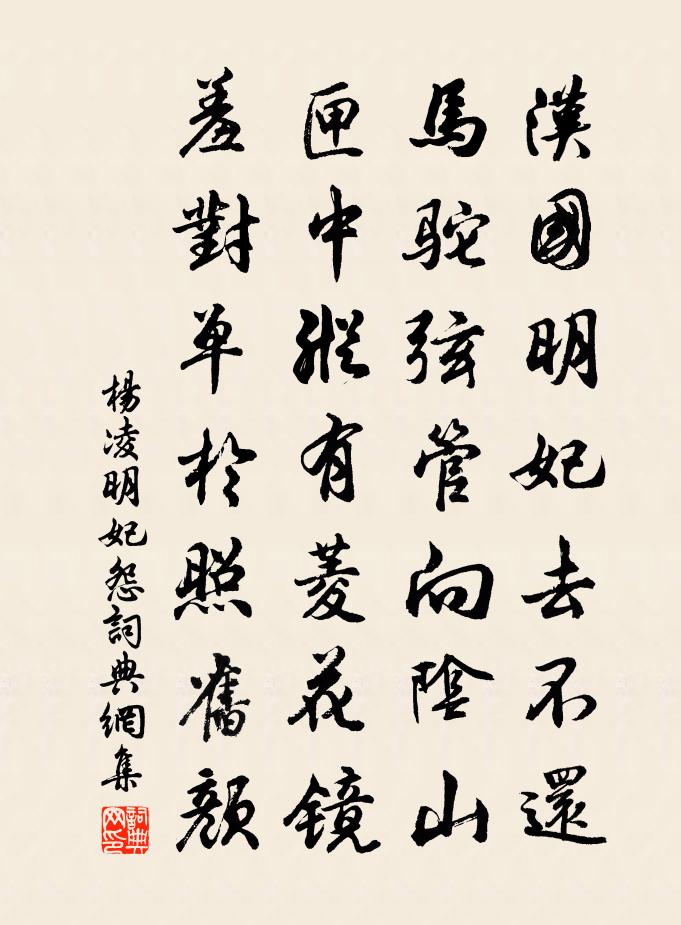 漢國明妃去不還
馬駝弦管向陰山
匣中縱有菱花鏡
羞對单於照舊顔
楊凌明妃怨詞典網集
詞典网印